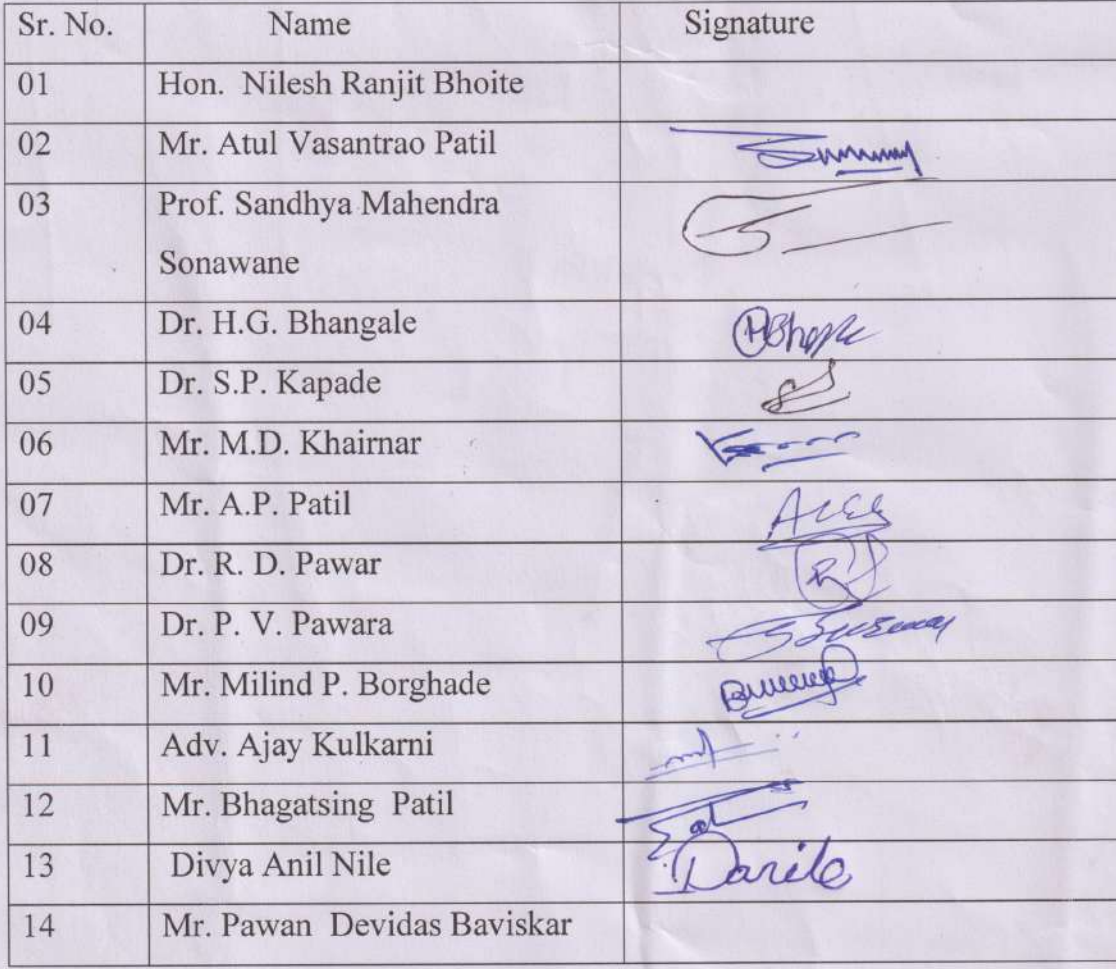 Sr. No. Name Signature
01 Hon. Nilesh Ranjit Bhoite
02 Mr. Atul Vasantrao Patil
03 Prof. Sandhya Mahendra
Sonawane
04 Dr. H.G. Bhangale
05 Dr. S.P. Kapade
06 Mr. M.D. Khairnar
07 Mr. A.P. Patil
08 Dr. R. D. Pawar
09 Dr. P. V. Pawara
10 Mr. Milind P. Borghade
11 Adv. Ajay Kulkarni
12 Mr. Bhagatsing Patil
13 Divya Anil Nile
14 Mr. Pawan Devidas Baviskar